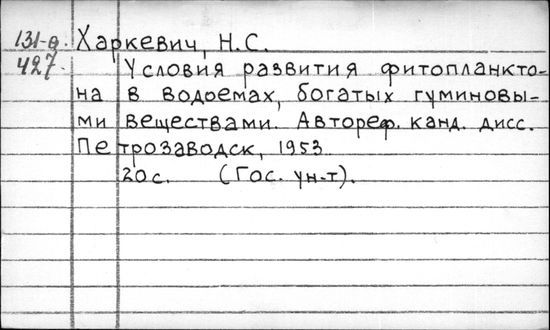 131-а Харкевич, Н.С.
427 Условия развития фитопланкто-
на в водоемах, богатых гуминовы-
ми веществами. Автореф. канд. дисс.
Петрозаводск, 1953
20 с. (Гос. ун-т).